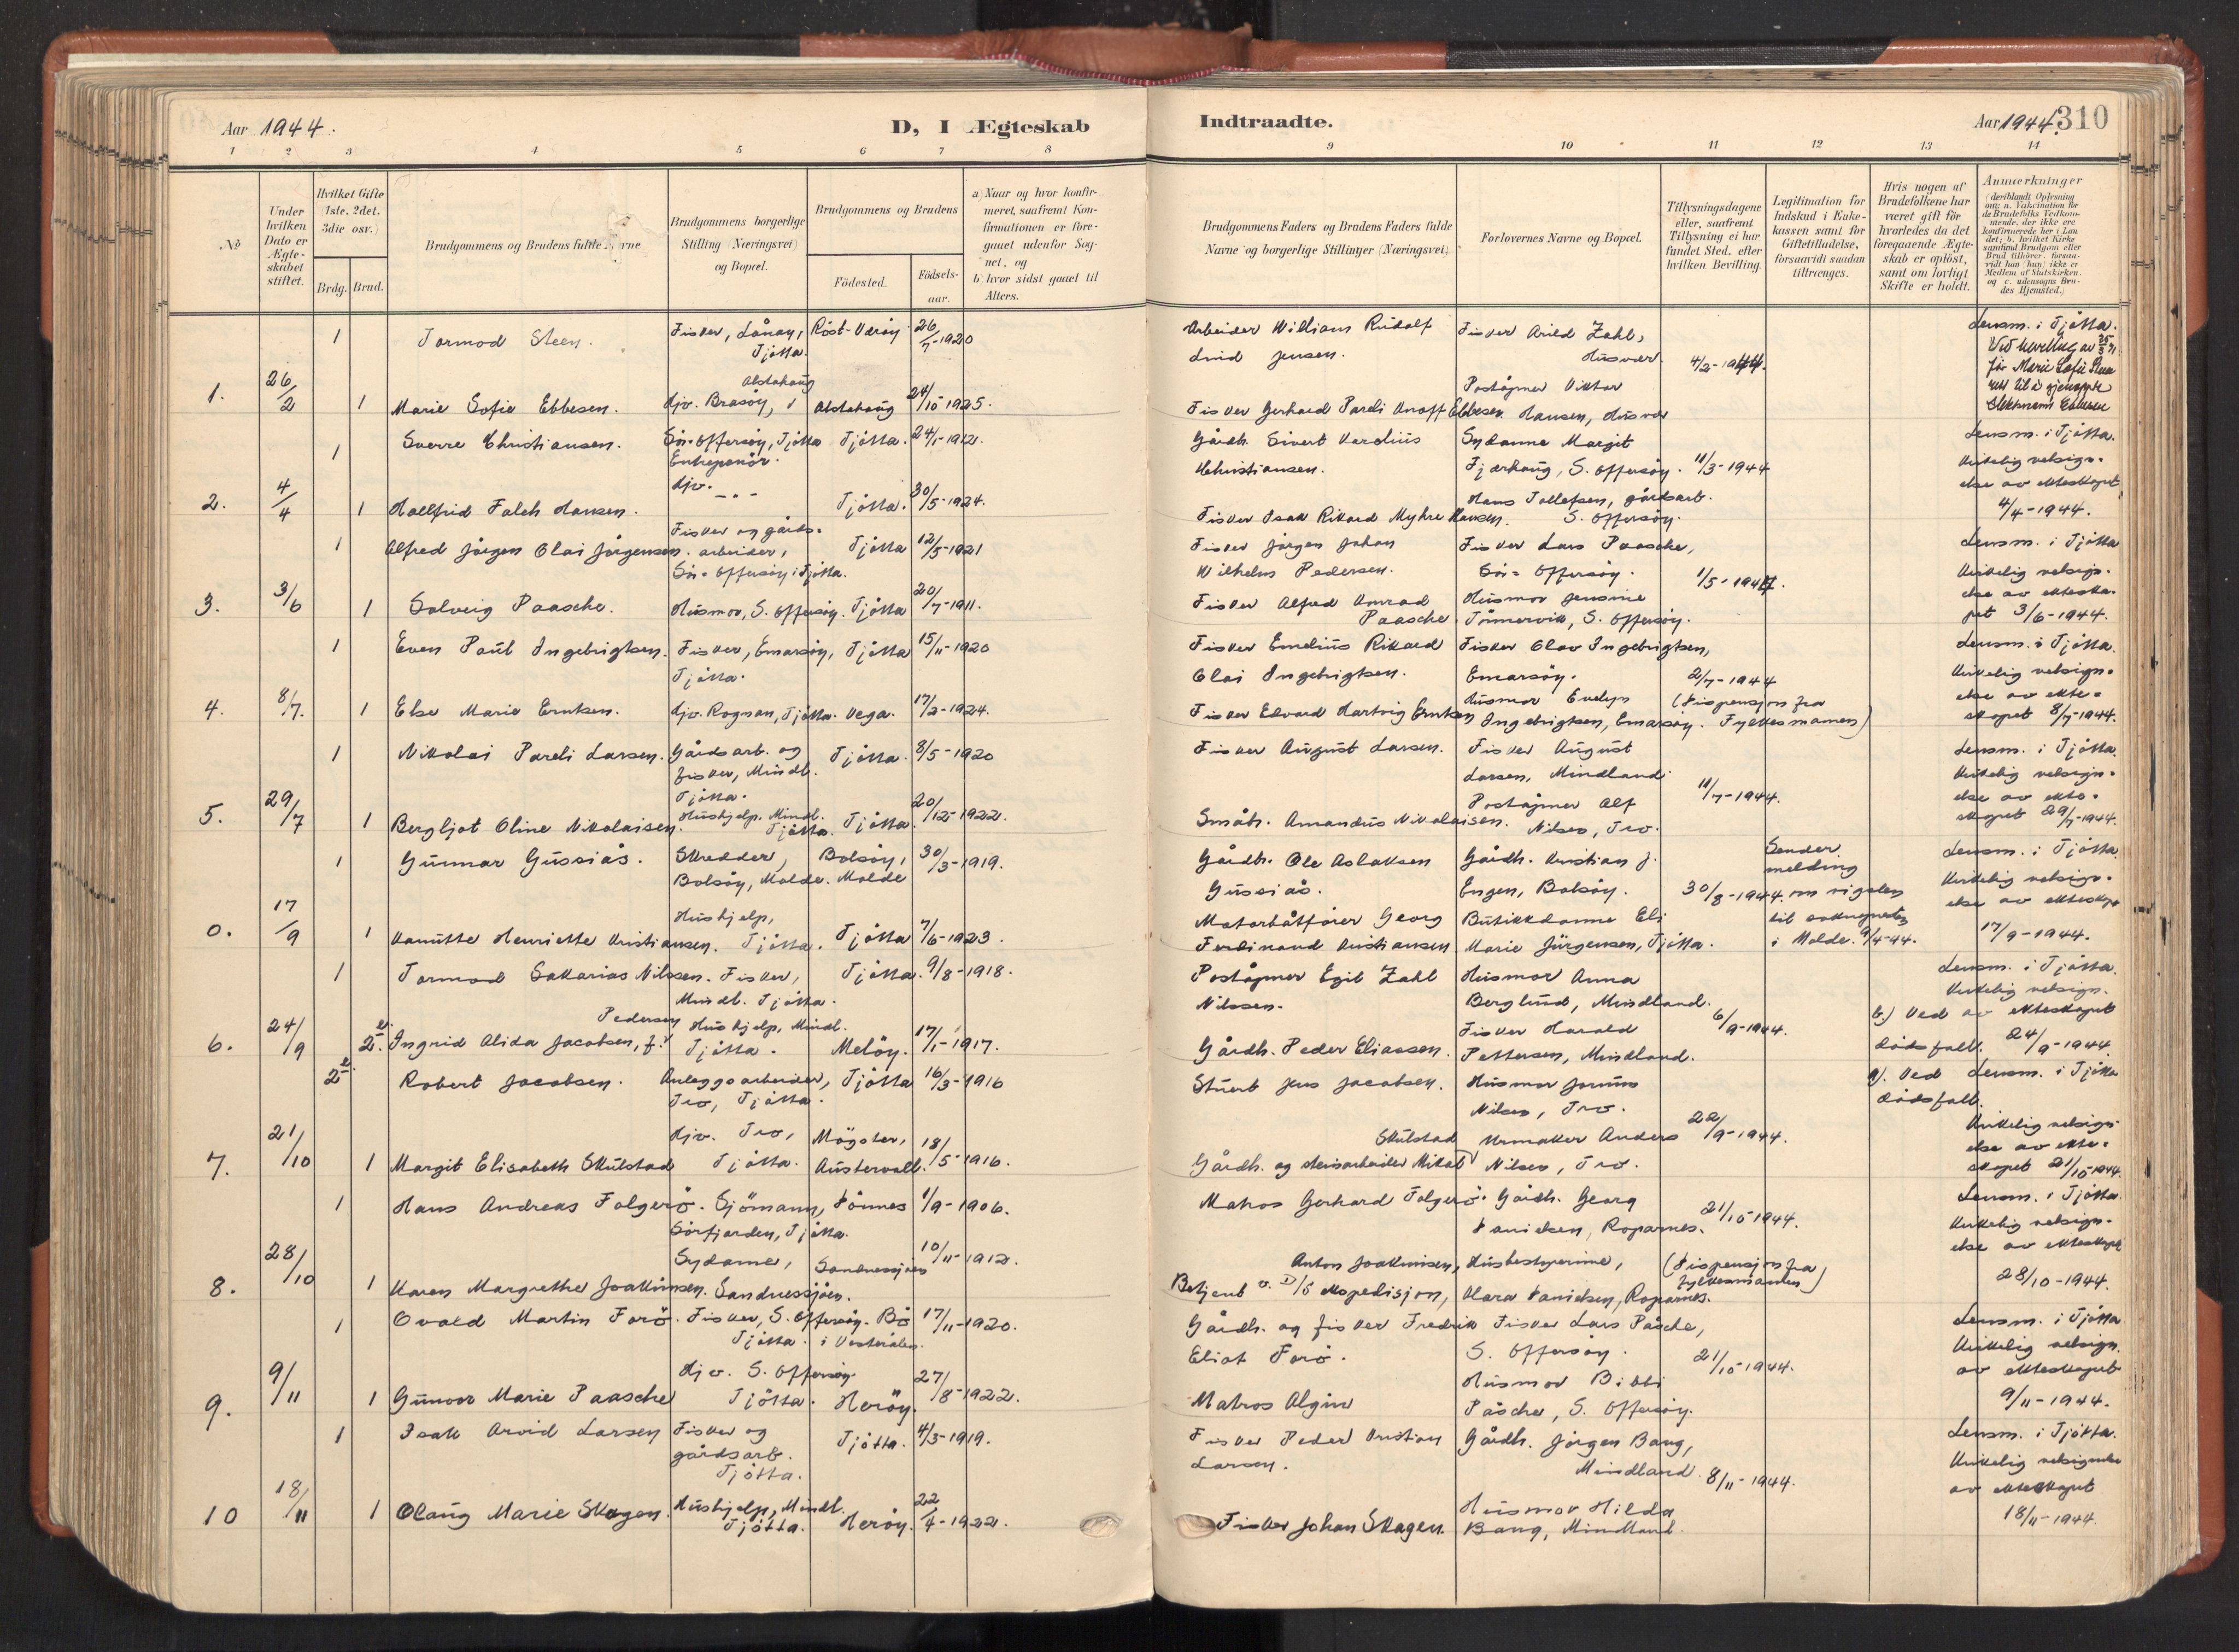 Aar 1944.
D, I Ægteskab
Indtraadte.
Aar 1944. 310
1 2 3 4 5 6 7 8
9 10 11 12 13 14
No
Under hvilken Dato er Ægteskabet stiftet.
Hvilket Gifte (1ste. 2det. 3die osv.)
Brdg. Brud.
Brudgommens og Brudens fulde Navne
Brudgommens borgerlige Stilling (Næringsvei) og Bopæl.
Brudgommens og Brudens
Födested. Födselsaar.
a) Naar og hvor konfirmeret, saafremt Konfirmationen er foregaaet udenfor Sognet, og
b) hvor sidst gaaet til Alters.
Brudgommens Faders og Brudens Faders fulde Navne og borgerlige Stillinger (Næringsvei)
Forlovernes Navne og Bopæl.
Tillysningsdagene eller, saafremt Tillysning ei har fundet Sted, efter hvilken Bevilling.
Legitimation for Indskud i Enkekassen samt for Giftetilladelse, forsaavidt saadan tiltrænges.
Hvis nogen af Brudefolkene har været gift för hvorledes da det foregaaende Ægteskab er oplöst, samt om lovligt Skifte er holdt.
Anmærkninger
(deriblandt Oplysning om: a. Vakcination for de Brudefolks Vedkommende, der ikke ere konfirmerede her i Landet; b. hvilket Kirkesamfund Brudgom eller Brud tilhörer, forsaavidt han (hun) ikke er Medlem af Statskirken. og c. udensogns Brudes Hjemsted.)
1 Tormod Steen. Fisker, Lånan, Tjøtta. Røst-Værøy 26/7-1920
Arbeider William Rudolf Lund Jensen. Fisker Arild Zahl, Husvær. 4/2-1944. Lensm. i Tjøtta.
1. 26/2 1 Marie Sofie Ebbesen. Hjv. Brasøy, Alstahaug Alstahaug 24/10-1925.
Fisker Gerhard Pareli Knoff Ebbesen. Poståpner Viktor Hansen, Husvær
1 Sverre Christiansen. Sør-Offersøy, Tjøtta Entreprenør. Tjøtta. 24/1-1912.
Gårdb. Sivert Kardius Khristiansen. Sydame Margit Fjærhaug, S. Offersøy. 11/3-1944 Lensm. i Tjøtta. Kirkelig velsign-
2. 4/4 1 Hallfrid Falch Hansen. Hjv. -"- Tjøtta. 30/5-1924.
Fisker Isak Rikard Myhre Hansen. Hans Tollefsen, gårdsarb. S. Offersøy. else av ekteskapet 4/4-1944.
1 Alfred Jørgen Olai Jørgensen. Fisker og gårdsarbeider, Sør-Offersøy i Tjøtta. Tjøtta 12/5-1921
Fisker Jørgen Johan Wilhelm Pedersen. Fisker Lars Paasche, Sør-Offersøy. 1/5-1944. Lensm. i Tjøtta Kirkelig velsign-
3. 3/6 1 Solveig Paasche. Husmor, S. Offersøy. Tjøtta 20/7-1911.
Fisker Alfred Konrad Paasche. Husmor Jensine Tømmervik, S. Offersøy. else av ekteskapet 3/6-1944.
1 Even Paul Ingebrigtsen. Fisker, Emarsøy, Tjøtta. Tjøtta 15/11-1920
Fisker Emelius Rikard Olai Ingebrigtsen. Fisker Olav Ingebrigtsen, Emarsøy. 2/7-1944 Lensm. i Tjøtta. Kirkelig velsign-
4. 8/7. 1 Else Marie Erntsen. Hjv. Rognan, Tjøtta. Vega. 17/2-1924.
Fisker Edvard Hartvig Erntsen Husmor Evelyn Ingebrigtsen, Emarsøy. (Dispensjon fra Fylkesmannen) else av ekteskapet 8/7-1944.
1 Nikolai Pareli Larsen. Gårdsarb. og fisker, Mindl. Tjøtta. Tjøtta. 8/5-1920
Fisker August Larsen. Fisker August Larsen, Mindland 11/7-1944. Lensm. i Tjøtta. Kirkelig velsign-
5. 29/7 1 Bergljot Oline Nikolaisen. Hushjelp. Mindl. Tjøtta. Tjøtta. 20/12-1922.
Småbr. Amandus Nikolaisen. Poståpner Alf Nilsen, Tro. else av ekteskapet 29/7-1944.
1 Gunnar Gussiås. Skredder, Bolsøy, Molde. Bolsøy, Molde 30/3-1919.
Gårdb. Ole Aslaksen Gussiås. Gårdb. Kristian J. Engen, Bolsøy. 30/8-1944. Sender melding om vigslen til soknepresten i Molde. Lensm. i Tjøtta. Kirkelig velsign-
0. 17/9 1 Kanutte Henriette Kristiansen. Hushjelp, Tjøtta. Tjøtta 7/6-1923.
Motorbåtfører Georg Ferdinand Kristiansen. Butikkdame Eli Marie Jürgensen, Tjøtta. else av ekteskapet 17/9-1944.
1 Tormod Sakarias Nilssen. Fisker, Mindl. Tjøtta. Tjøtta. 9/8-1918.
Poståpner Egil Zahl Nilssen. Husmor Anna Berglund, Mindland. 6/9-1944. Lensm. i Tjøtta. Kirkelig velsign.
6. 24/9 2. Ingrid Alida Jacobsen, f. Pedersen Hushjelp, Mindl. Tjøtta. Meløy. 17/1-1917.
Gårdb. Peder Eliassen. Fisker Harald Pettersen, Mindland. b.) Ved dødsfall. av ekteskapet 24/9-1944.
2 Robert Jacobsen. Anleggsarbeider, Tro, Tjøtta. Tjøtta 16/3-1916
Stuert Jens Jacobsen. Husmor Jorunn Nilsen, Tro. 22/9-1944. a). Ved dødsfall. Lensm. i Tjøtta Kirkelig velsign-
7. 21/10 1 Margit Elisabeth Skulstad Hjv. Tro, Tjøtta. Møgster, Austervoll. 18/5-1916.
Gårdb. og steinarbeider Mikal Skulstad Urmaker Anders Nilsen, Tro. else av ekteskapet 21/10-1944.
1 Hans Andreas Folgerö. Sjömann, Sörfjorden, Tjøtta. Dönnes 1/9-1906.
Matros Gerhard Folgerö. Gårdb. Georg Danielsen, Roparnes. 21/10-1944. Lensm. i Tjøtta. Kirkelig velsign-
8. 28/10 1 Karen Margrethe Joakimsen. Sydame, Sandnessjøen. Sandnessjøen 10/11-1912.
Anton Joakimsen, Betjent v. D/S ekspedisjon, Husbestyrerinne, Klara Danielsen, Roparnes. (Dispensjon fra fylkesmannen) else av ekteskapet 28/10-1944.
1 Ovald Martin Forö. Fisker, S. Offersøy. Tjøtta. Bö i Vesterålen. 17/11-1920.
Gårdb. og fisker Fredrik Eliot Forö. Fisker Lars Påsche, S. Offersøy. 21/10-1944. Lensm. i Tjøtta Kirkelig velsign.
9. 9/11 1 Gunvor Marie Paasche Hjv. S. Offersøy. Tjötta. Herøy. 27/8-1922.
Matros Algin Husmor Bibbi Påsche, S. Offersøy. av ekteskapet 9/11-1944.
1 Isak Arvid Larsen Fisker og gårdsarb. Tjøtta. Tjøtta. 4/3-1919.
Fisker Peder Kristian Larsen. Gårdb. Jörgen Bang, Mindland. 8/11-1944. Lensm. i Tjøtta. Kirkelig velsignelse
10 18/11 1 Olaug Marie Skagen. Hushjelp, Mindl. Tjøtta. Herøy. 22/4-1922.
Fisker Johan Skagen. Husmor Hilda Bang, Mindland. av ekteskapet 18/11-1944.